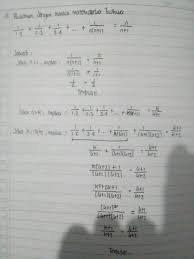 Buktikan dengan induksi matematika bahwa
1/1.2 + 1/2.3 + 1/3.4 + ... + 1/n(n+1) = n/n+1
Jawab :
Jika n=1, maka :
1/1(1+1) = 1/1+1
1/2 = 1/2
Terbukti
Jika n=k, maka : 1/1.2 + 1/2.3 + 1/3.4 + ... + 1/k(k+1) = k/k+1
Jika n = k+1, maka : 1/1.2 + 1/2.3 + 1/3.4 + ... + 1/k(k+1) + 1/(k+1)(k+2) = k+1/k+2
k/k+1 + 1/(k+1)(k+2) = k+1/k+2
k(k+2)+1/(k+1)(k+2) = k+1/k+2
k²+2k+1/(k+1)(k+2) = k+1/k+2
(k+1)²/(k+1)(k+2) = k+1/k+2
k+1/k+2 = k+1/k+2